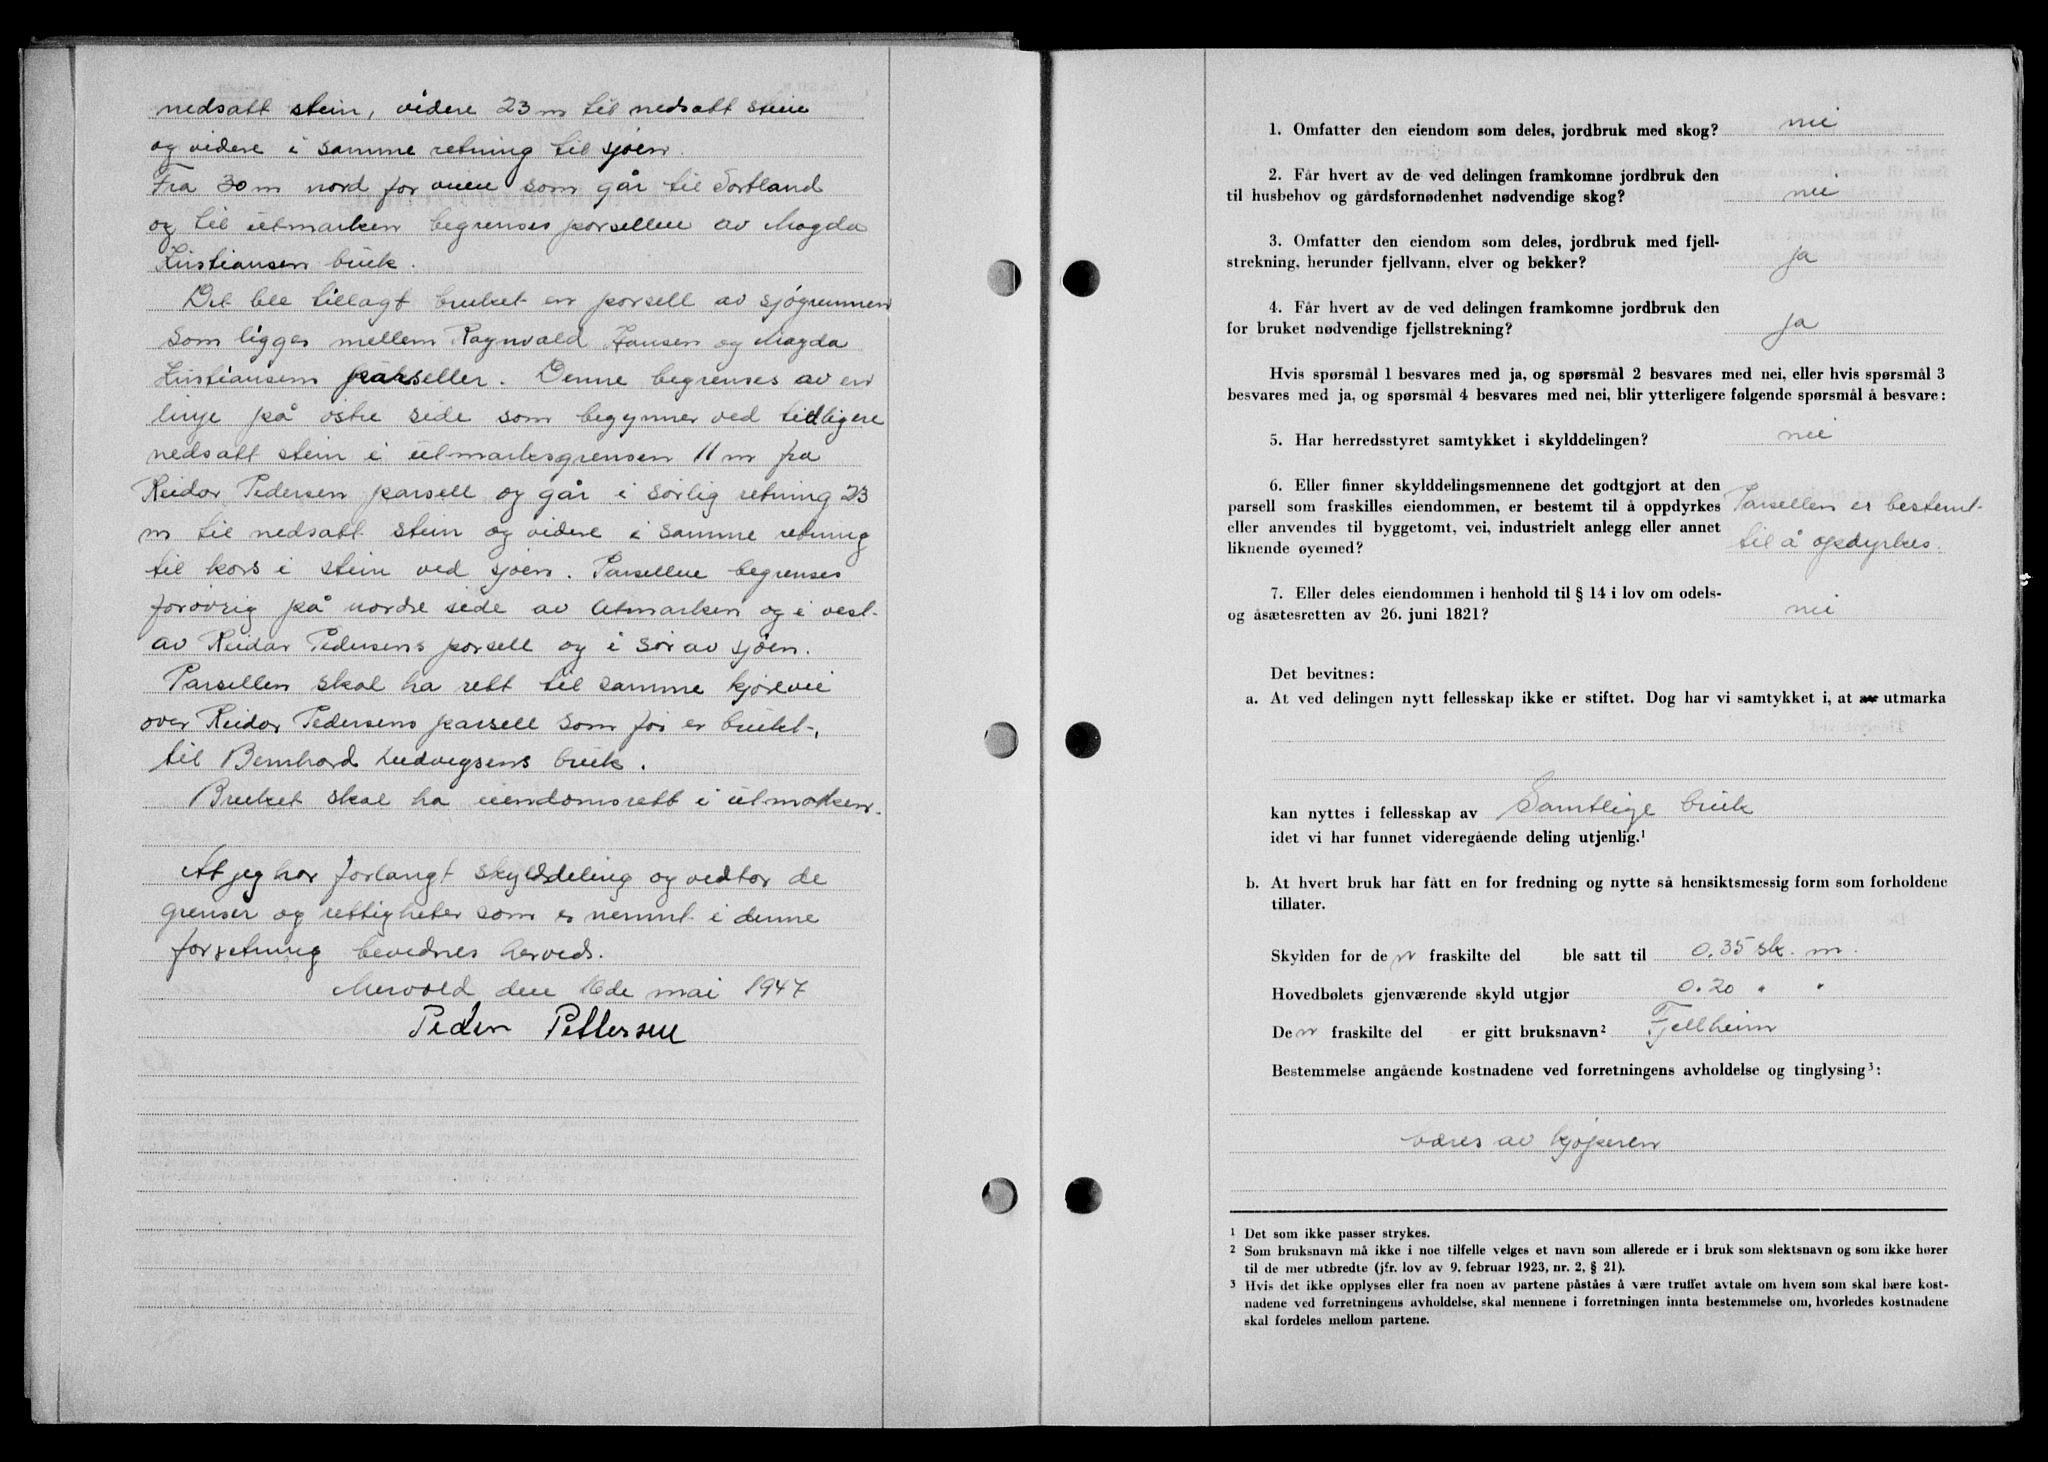 nedsatt stein, videre 23 m til nedsatt stein
og videre i samme retning til sjøen.
Fra 30 m nord for veien som går til Sortland
og til utmarken begrenses parsellen av Magda
Kristiansen bruk.
Det ble tillagt bruket en parsell av sjøgrunnen
som ligger mellem Ragnvald Hansen og Magda
Kristiansens parseller. Denne begrenses av en
linje på østre side som begynner ved tidligere
nedsatt stein i utmarksgrensen 11 m fra
Reidar Pedersen parsell og går i sørlig retning 23
m til nedsatt stein og videre i samme retning
til kors i stein ved sjøen. Parsellen begrenses
forøvrig på nordre side av utmarken og i vest
av Reidar Pedersens parsell og i sør av sjøen.
Parsellen skal ha rett til samme kjørevei
over Reidar Pedersens parsell som før er brukt,
til Bernhard Ludvigsens bruk.
Bruket skal ha eiendomsrett i utmarken.
At jeg har forlangt skylddeling og vedtar de
grenser og rettigheter som er nevnt i denne
forretning bevidnes herved.
den 16de mai 1947
Peder Pettersen
1. Omfatter den eiendom som deles, jordbruk med skog? nei
2. Får hvert av de ved delingen framkomne jordbruk den
til husbehov og gårdsfornødenhet nødvendige skog? nei
3. Omfatter den eiendom som deles, jordbruk med fjell-
strekning, herunder fjellvann, elver og bekker? ja
4. Får hvert av de ved delingen framkomne jordbruk den
for bruket nødvendige fjellstrekning? ja
Hvis spørsmål 1 besvares med ja, og spørsmål 2 besvares med nei, eller hvis spørsmål 3
besvares med ja, og spørsmål 4 besvares med nei, blir ytterligere følgende spørsmål å besvare:
5. Har herredsstyret samtykket i skylddelingen? nei
6. Eller finner skylddelingsmennene det godtgjort at den
parsell som fraskilles eiendommen, er bestemt til å oppdyrkes Parsellen er bestemt
eller anvendes til byggetomt, vei, industrielt anlegg eller annet
liknende øyemed? til å opdyrkes.
7. Eller deles eiendommen i henhold til § 14 i lov om odels-
og åsætesretten av 26. juni 1821? nei
Det bevitnes:
a. At ved delingen nytt fellesskap ikke er stiftet. Dog har vi samtykket i, at av utmarka
kan nyttes i fellesskap av Samtlige bruk
idet vi har funnet videregående deling utjenlig.¹
b. At hvert bruk har fått en for fredning og nytte så hensiktsmessig form som forholdene
tillater.
Skylden for den fraskilte del ble satt til 0.35 sk. m.
Hovedbølets gjenværende skyld utgjør 0.20 " "
Den fraskilte del er gitt bruksnavn² Fjellheim
Bestemmelse angående kostnadene ved forretningens avholdelse og tinglysing³:
bæres av kjøperen
¹ Det som ikke passer strykes.
² Som bruksnavn må ikke i noe tilfelle velges et navn som allerede er i bruk som slektsnavn og som ikke hører
til de mer utbredte (jfr. lov av 9. februar 1923, nr. 2, § 21).
³ Hvis det ikke opplyses eller fra noen av partene påståes å være truffet avtale om hvem som skal bære kost-
nadene ved forretningens avholdelse, skal mennene i forretningen innta bestemmelse om, hvorledes kostnadene
skal fordeles mellom partene.